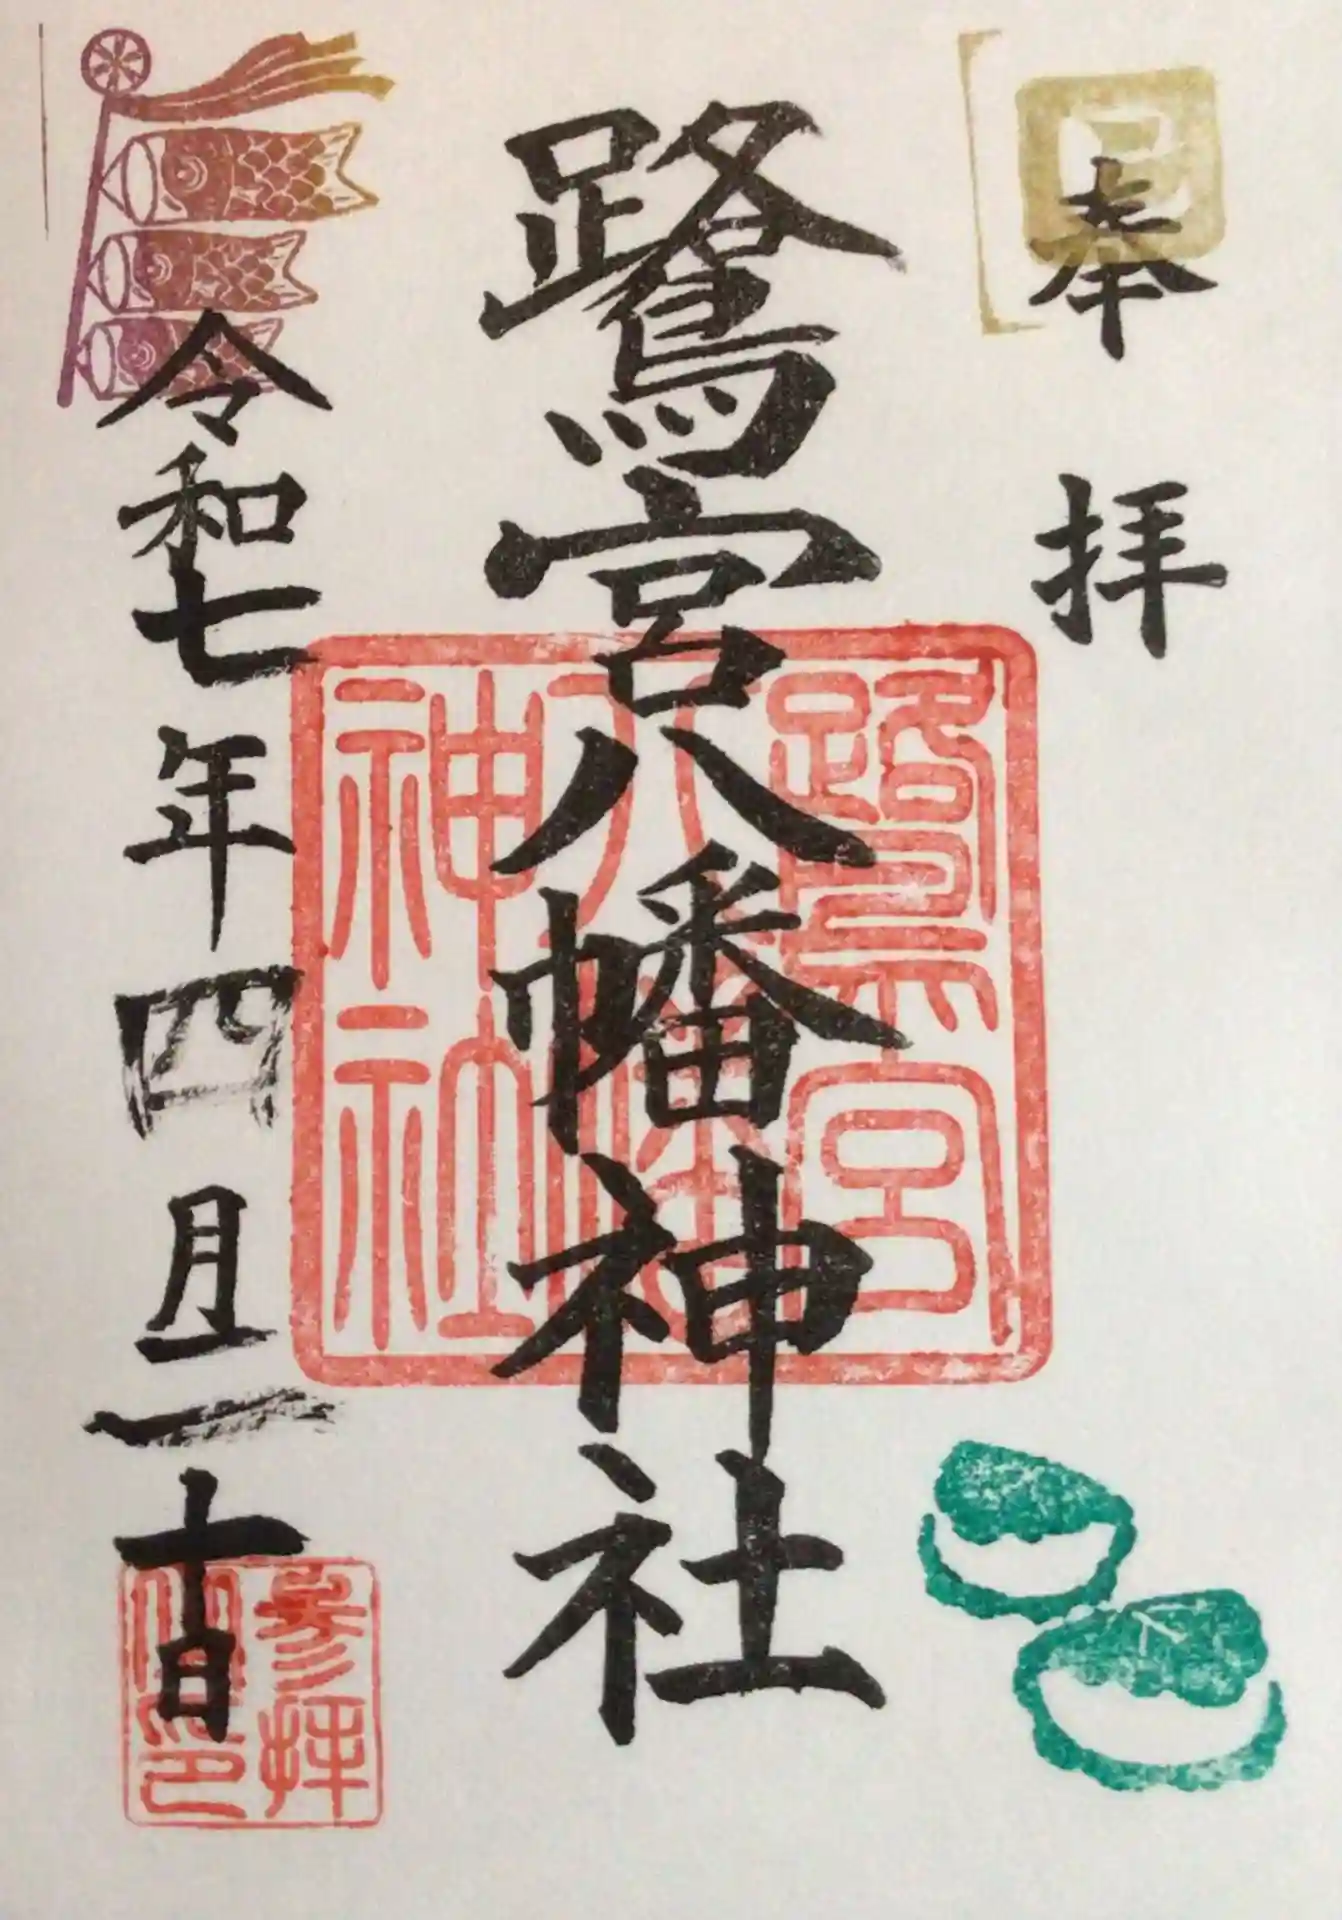 巳
奉拝
鷺宮八幡神社
鷺宮
八幡
神社
令和七年四月二十日
參拝
印